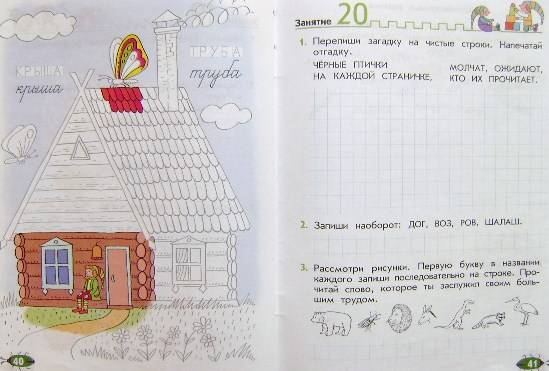 КРЫША
крыша
ТРУБА
труба
40
Занятие 20
1. Перепиши загадку на чистые строки. Напечатай
отгадку.
ЧЁРНЫЕ ПТИЧКИ
НА КАЖДОЙ СТРАНИЧКЕ,
МОЛЧАТ, ОЖИДАЮТ,
КТО ИХ ПРОЧИТАЕТ.
2. Запиши наоборот: ДОГ, ВОЗ, РОВ, ШАЛАШ.
3. Рассмотри рисунки. Первую букву в названии
каждого запиши последовательно на строке. Про-
читай слово, которое ты заслужил своим боль-
шим трудом.
41